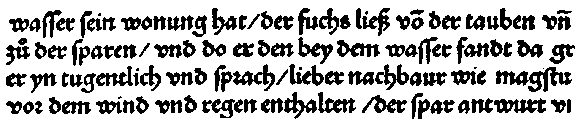 wasser sein wonung hat/der fuchs ließ võ der tauben vñ
zů der sparen/ vnd do er den bey dem wasser fandt da gr
er yn tugentlich vnd sprach/lieber nachbaur wie magstu
vor dem wind vnd regen enthalten /der spar antwurt vi